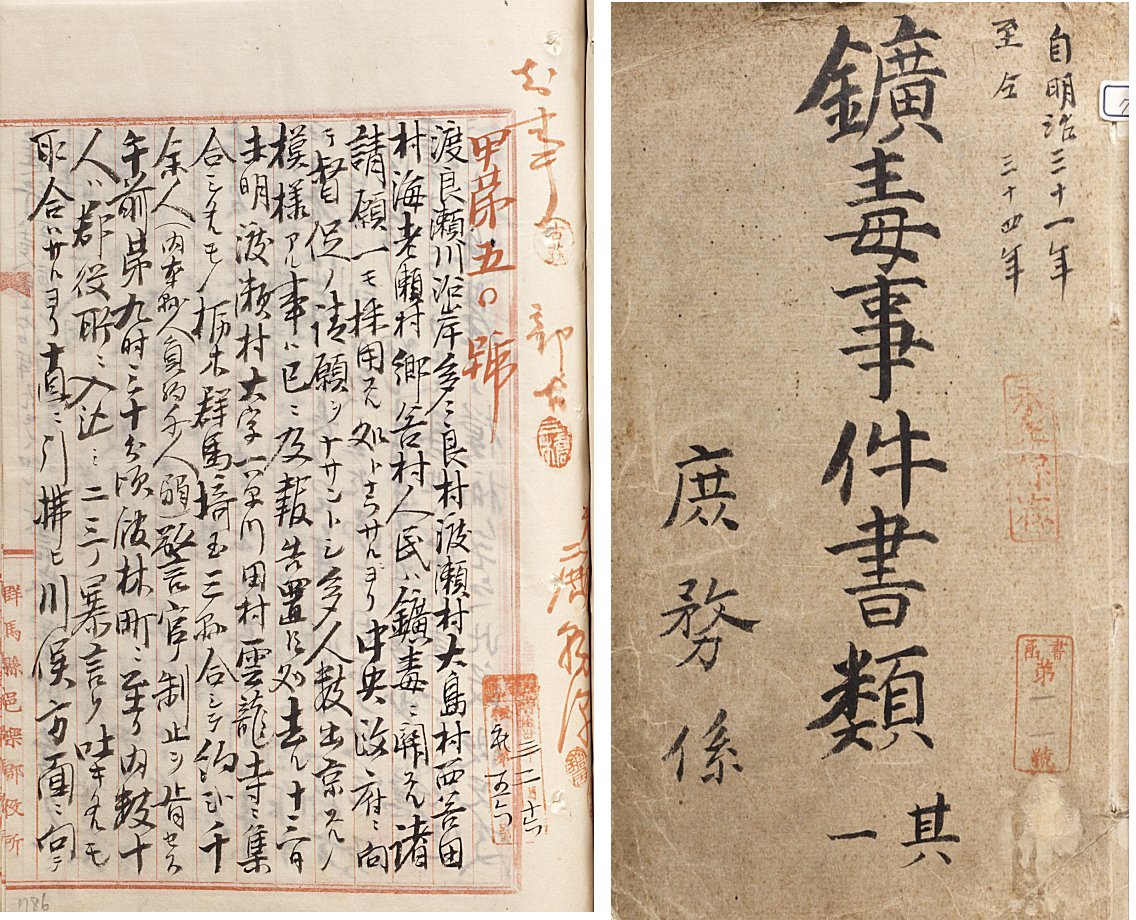 甲第五〇號
渡良瀬川沿岸多々良村渡瀬村大島村西谷田
村海老瀬村郷谷村人民ハ鑛毒ニ關スル諸
請願一モ採用スル処トナラサルヨリ中央政府ニ向
テ督促ノ請願ヲナサントシ多人数出京スルノ
模様アル事ハ已ニ及報告置候処去ル十三日
未明渡瀬村大字下早川田村雲龍寺ニ集
合シタルモノ栃木群馬埼玉三縣合シテ約弐千
余人(内本縣人員約千人)警官ノ制止ヲ肯セス
午前第九時三十分頃館林町ニ至リ内数十
人ハ郡役所ニ入込ミ二三ノ暴言ヲ吐キタルモ
取合ハサルヨリ直ニ引拂ヒ川俣方面ニ向テ
群馬縣邑樂郡役所
786
自明治三十一年
至仝三十四年
鑛毒事件書類
其一
庶務係
永久保存
書函第一一號